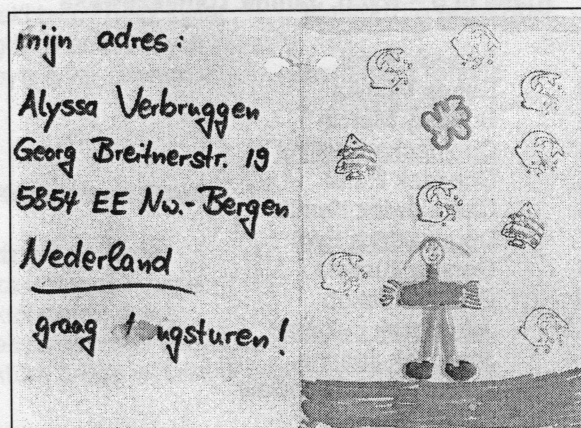 mijn adres:
Alyssa Verbruggen
Georg Breitnerstr. 19
5854 EE Nw.-Bergen
Nederland
graag !